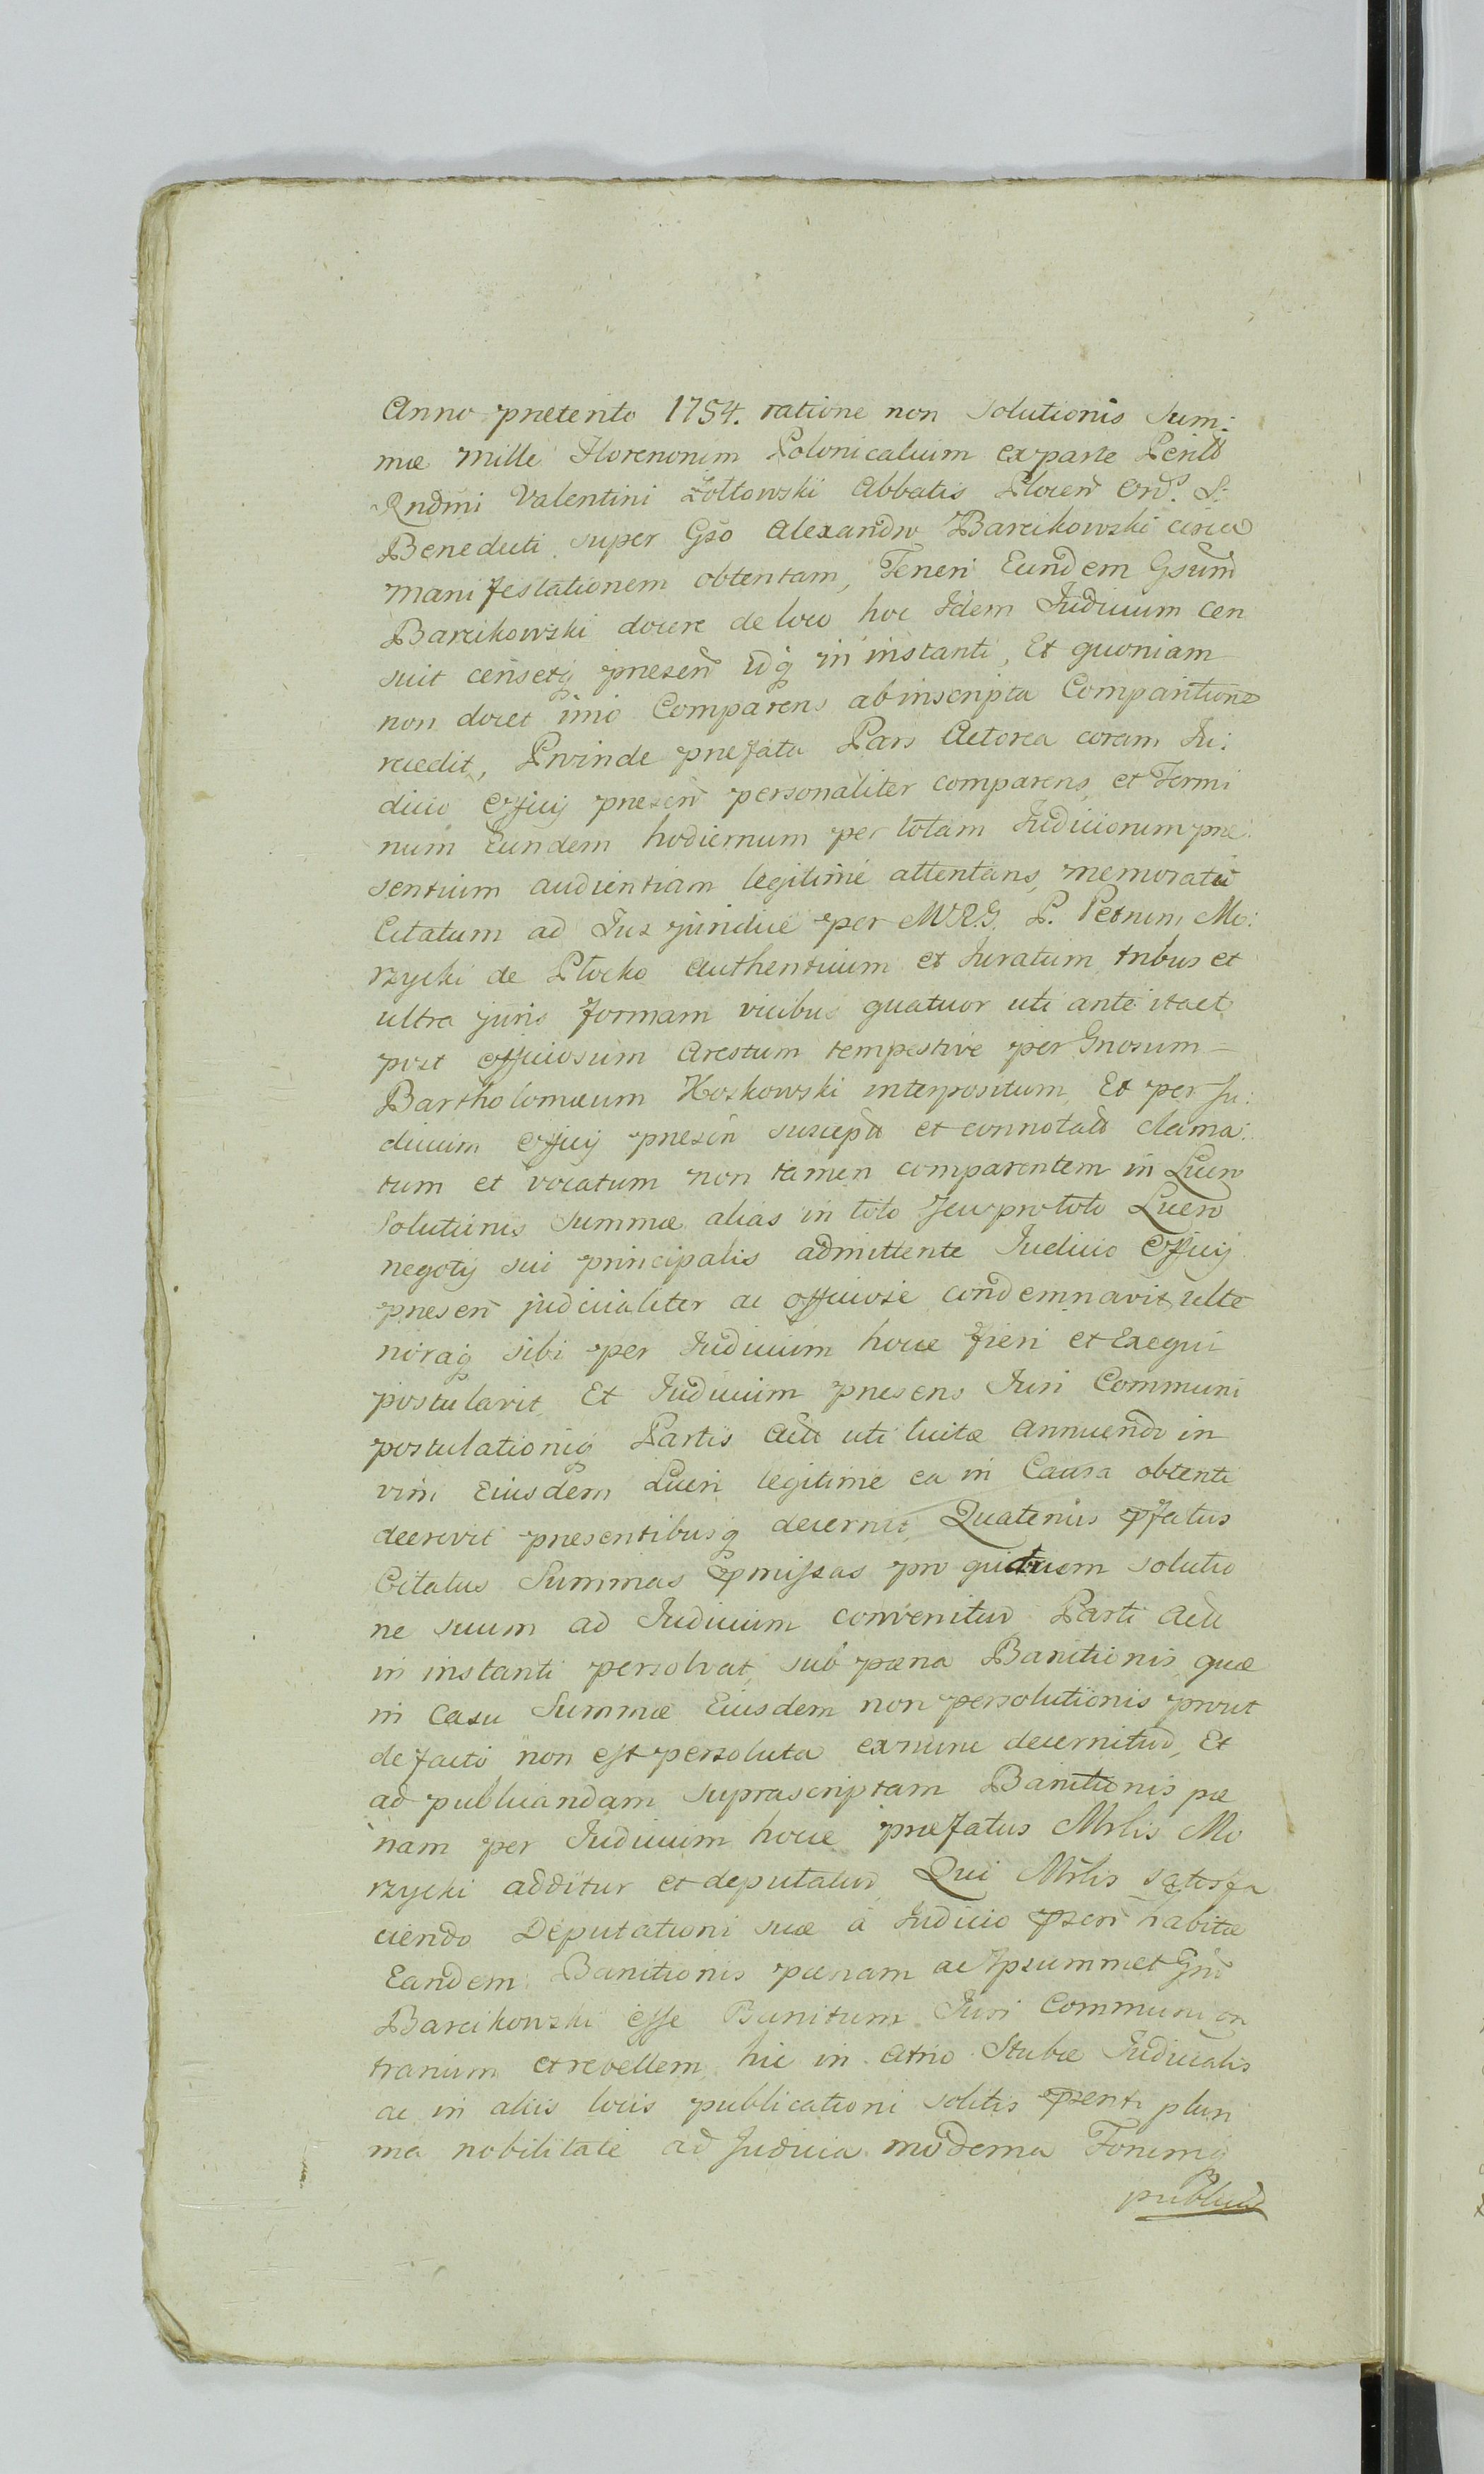 Anno præterito 1754. ratione non solutionis Sum:
mæ mille Florenorum Polonicalium ex parte Perild
Rndmi Valentini Zołtowski Abbatis Plocen Ord. S:
Benedicti super Gso Alexandro Barcikowski circa
manifestationem obtentam, Teneri Eundem Gsum
Barcikowski docere de loco hoc Idem Judicium cen
suit censetq præsen idq in instanti, Et quoniam
non docet imo Comparens ab inscripta Comparitione
recedit, Proinde præfata Pars Actorea coram Ju:
dicio Officij præsen personaliter comparens et Termi
num Eundem hodiernum per totam Judiciorum præ
sentium audientiam legitime attentans, memoratu
Citatum ad Jus juridice per M.R.G. P. Petrum Mo:
rzycki de Płocko Authenticum et Juratum tribus et
ultra juris formam vicibus quatuor uti ante ita et
post officiosum Arestum tempestive per Gnosum
Bartholomæum Koskowski interpositum, Et per Ju:
dicium Officij præsen suscept et connotatu clama:
tum et vocatum non tamen comparentem in Lucro
Solutionis Summæ alias in toto seu pro toto Lucro
negotij sui principalis admittente Judicio Officij
præsen judicialiter ac officiose condemnavit, ulte
rioraq sibi per Judicium hocce fieri et Exequi
postulavit, Et Judicium præsens Juri Communi
postulationiq Partis Acti uti licitæ annuendo in
vim Eiusdem Lucri legitime ea in Causa obtenti
decrevit præsentibusq decernit, Quatenus pfatus
Citatus Summas pmissas pro quarum solutio
ne suum ad Judicium convenitur Parti Acti
in instanti persolvat, sub pæna Banitionis quæ
in Casu Summæ Eiusdem non persolutionis prout
de facto non est persoluta ex nunc decernitur, Et
ad publicandam suprascriptam Banitionis pæ
nam per Judicium hocce præfatus Mrlis Mo
rzycki additur et deputatur, Qui Mrlis satisfa
ciendo Deputationi suæ a Judicio psen habitæ
Eandem Banitionis pænam ac Ipsummet Gsu
Barcikowski esse Banitum Juri Communi con
trarium et revellem, hic in Atrio Stubæ Judicialis
ac in aliis locis publicationi solitis psenti pluri
ma nobilitate ad Judicia moderna Forumq
publicav